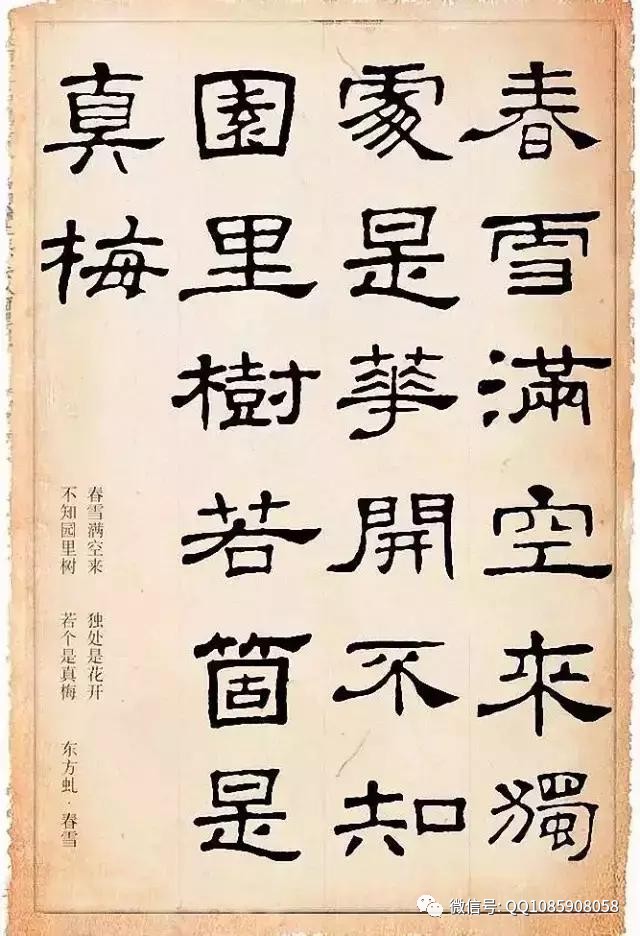 春雪滿空來獨
處是華開不知
園里樹若箇是
真梅
春雪满空来 独处是花开
不知园里树 若个是真梅 东方虬·春雪
微信号: QQ1085908058